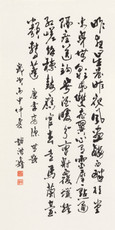 昨夜星辰昨夜風畫樓西畔桂堂
東身無彩鳳雙飛翼心有靈犀一點通
隔座送鉤春酒暖分曹射覆蠟燈
紅嗟余聽鼓應官去走馬蘭臺
類轉蓬 唐李商隱
歲次丙申仲春